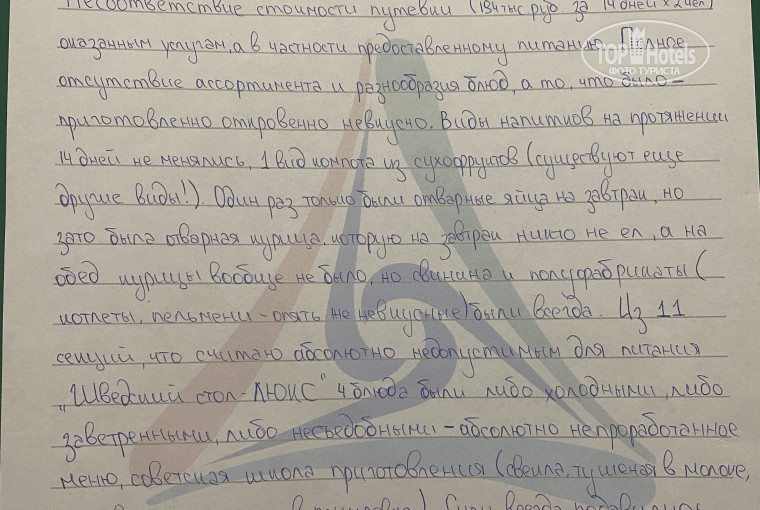 Несоответствие стоимости путевки (184 тыс руб за 14 дней х 2 чел)
оказанным услугам, а в частности предоставленному питанию. Полное
отсутствие ассортимента и разнообразия блюд, а то, что было –
приготовленно откровенно невкусно. Виды напитков на протяжении
14 дней не менялись, 1 вид компота из сухофруктов (существуют еще
другие виды!) Один раз только были отварные яйца на завтрак, но
зато была отварная курица, которую на завтрак никто не ел, а на
обед курицы вообще не было, но свинина и полуфабрикаты (
котлеты, пельмени - опять не невкусные) были всегда. Из 11
секций, что считаю абсолютно недопустимым для питания
„Шведский стол-ЛЮКС" 4 блюда были либо холодными, либо
заветренными, либо несъедобными – абсолютно непроработанное
меню, советская школа приготовления (свекла, тушеная в молоке,
TOPHotels
ФОТО ТУРИСТА